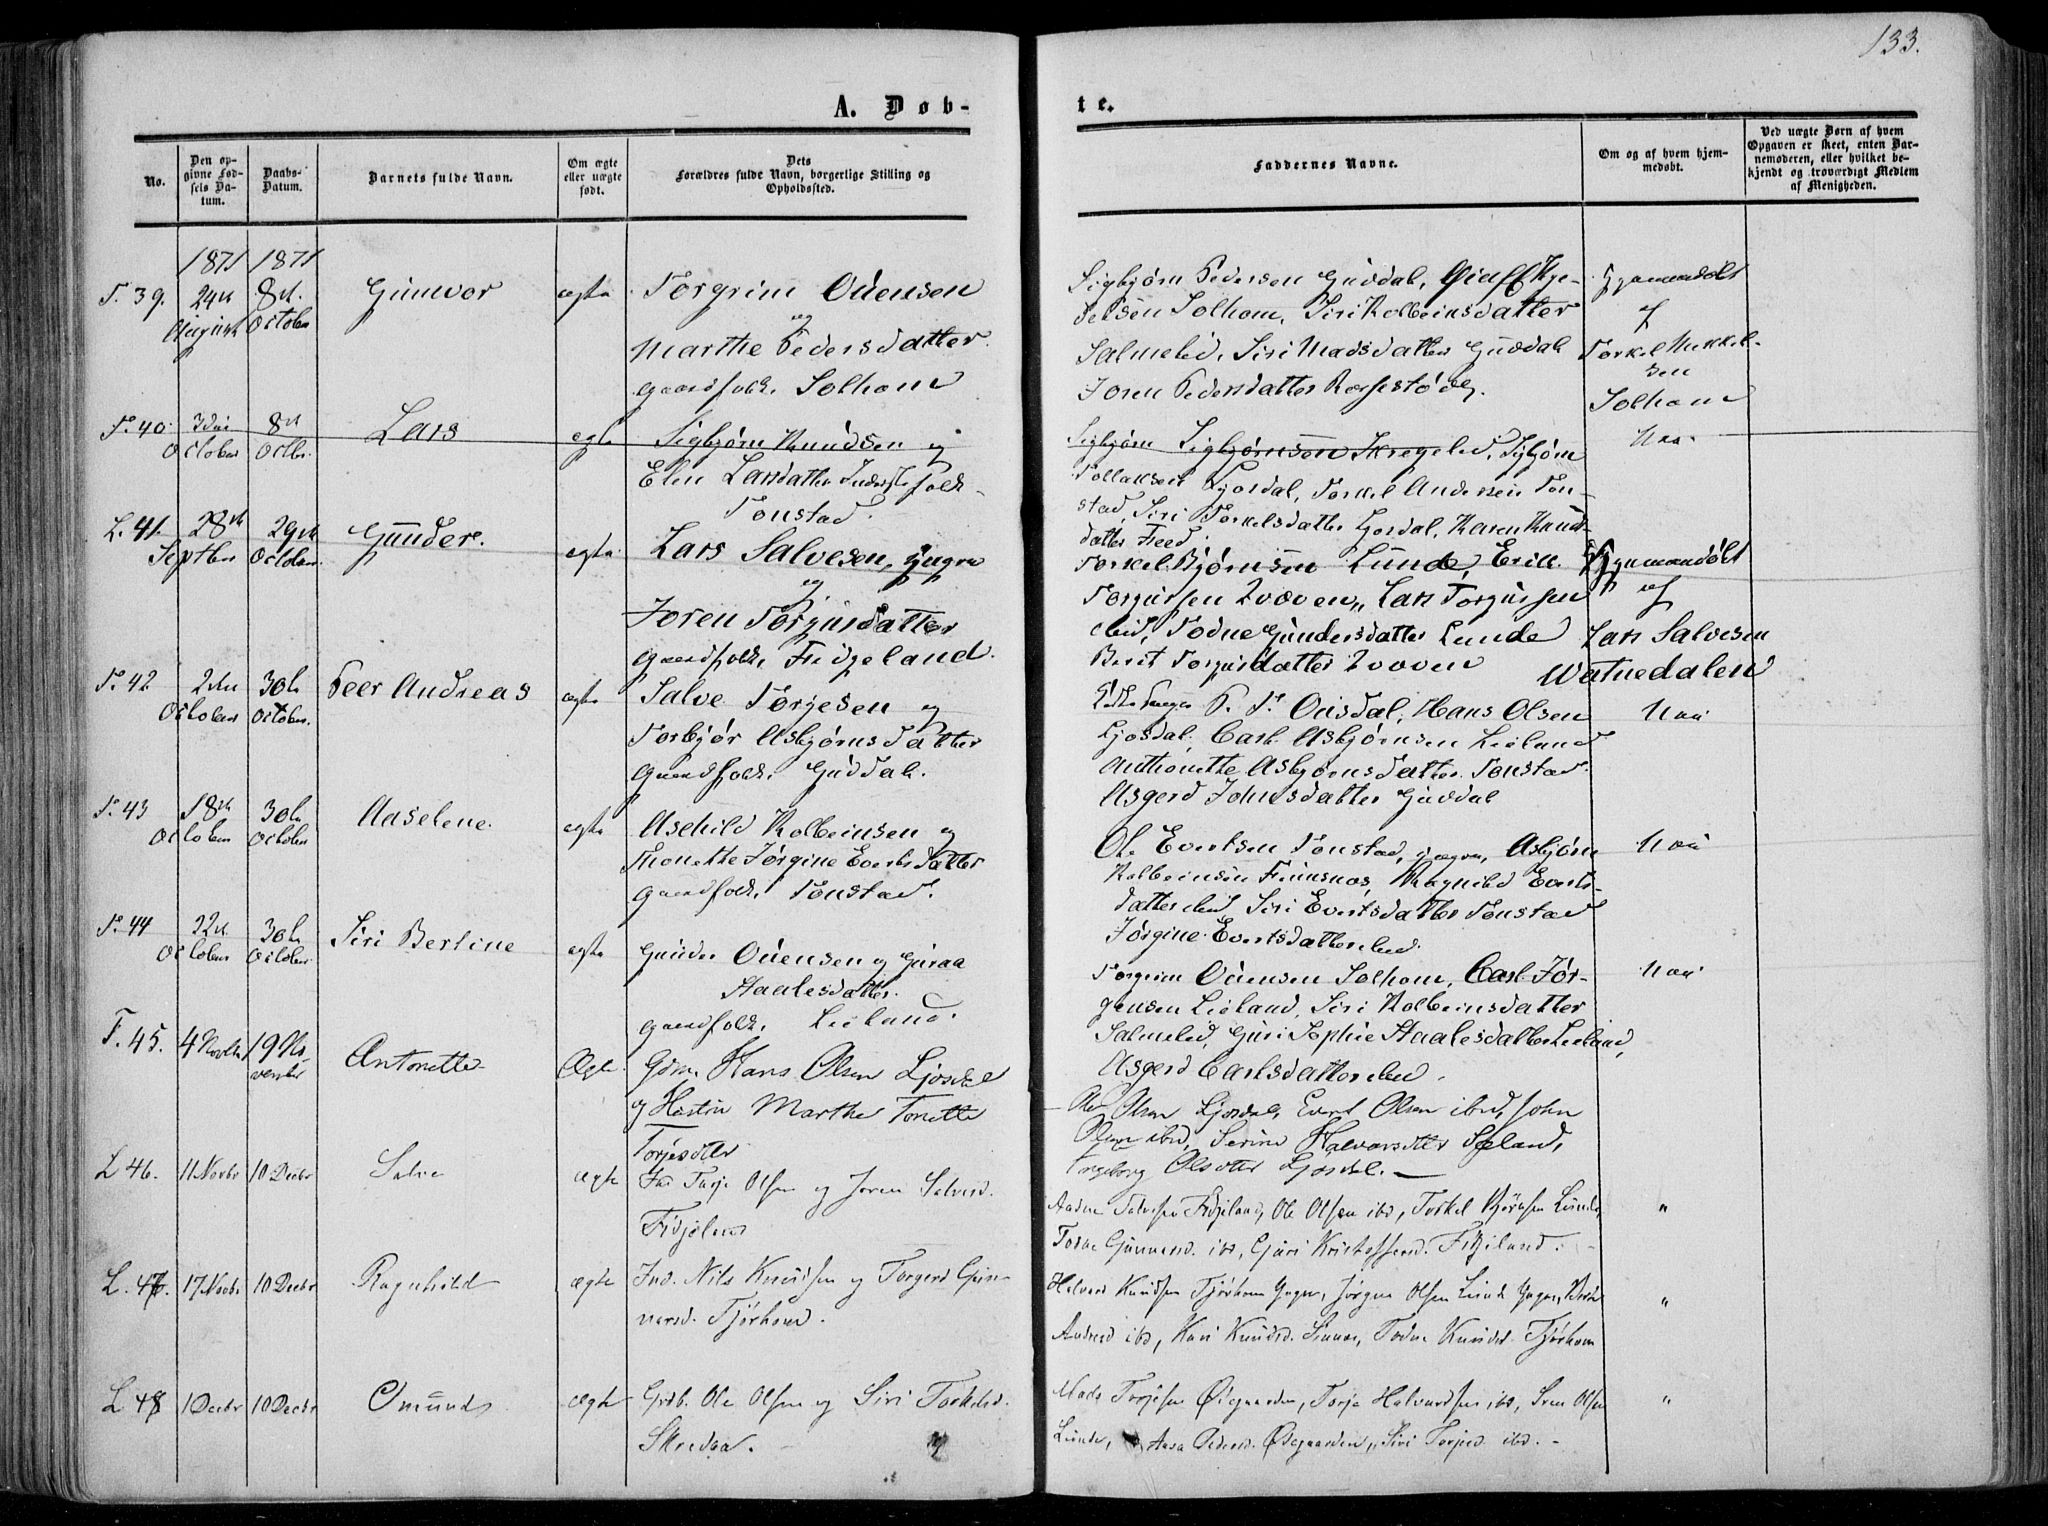 133.
A. Døb-
te.
No.
Den op-
givne Fød-
sels Da-
tum.
Daabs-
Datum.
Barnets fulde Navn.
Om ægte
eller uægte
født.
Dets
Forældres fulde Navn, borgerlige Stilling og
Opholdssted.
Faddernes Navne.
Om og af hvem hjem-
medøbt.
Ved uægte Børn af hvem
Opgaven er skeet, enten Bar-
nemoderen, eller hvilket be-
kjendt og troværdigt Medlem
af Menigheden.
1871 1871
T. 39. 24de August 8de October Gunvor ægte Torgrim Ouensen
og
Marthe Pedersdatter
gaardfolk. Solhom
Sigbjørn Pedersen Guddal,
Solhom, Siri Kolbeinsdatter
Salmelid, Siri Madsdatter Guddal
Joren Pedersdatter
Hjemmedøbt
af
Torkel Mikkel-
sen
Solhom
T. 40. 3die October 8de Octbr. Lars ægte Sigbjørn Knudsen og
Elen Larsdatter Inderstefolk
Tonstad.
Sigbjørn Sigbjørnsen Skregelid, Sigbjørn
Tollaksen Josdal, Torkel Andersen Ton-
stad, Siri Torkelsdatter Josdal, Karen Knuds-
datter Freed.
Nei
L. 41. 28de Septbr 29de October Gunder. ægte Lars Salvesen, yngre
og
Joren Torgusdatter
gaardfolk. Fidgeland.
Torkel Bjørnsen Lunde, Erik
Torgusen Qvæven, Lars Torgussen
ibid, Todne Gundersdatter Lunde
Berit Torgusdatter Qvæven
Hjemmedøbt
af
Lars Salvesen
Watnedalen
T. 42 2den October 30te October. Peer Andreas ægte Salve Torgesen og
Torbjør Asbjørnsdatter
gaardfolk. Guddal.
P. T. Ousdal, Hans Olsen
Ljosdal, Carl Asbjørnsen Lieland
Anthonette Asbjørnsdatter Tonstad.
Asgerd Johnsdatter Guddal
Nei
T. 43 18de October 30te October Aaselene. ægte Asehild Kolbeinsen og
Thonette Jørgine Evertsdatter
gaardfolk. Tonstad.
Ole Evertsen Tonstad, yngre, Asbjørn
Kolbeinsen Finsnes, Ragnild Everts-
datter ibid Siri Evertsdatter Tonstad
Jørgine Evertsdatter ibid.
Nei
T. 44 22de October 30te October. Siri Bertine ægte Gunder Ouensen og Guraa
Staalesdatter.
gaardfolk. Lieland.
Torgrim Ouensen Solhom, Carl Jør-
gensen Lieland, Siri Kolbeinsdatter
Salmelid, Guri Sophie Staalesdatter Lieland,
Asgerd Carlsdatter ibid.
Nei
F. 45. 4 Novbr 19 No-
vember Antonette Ægte. Gdm. Hans Olsen Ljosdal
og Hustru Marthe Tonette
Torjesdtter
Ole Olsen Ljosdal, Evert Olsen ibid, John
Olsen ibid, Serine Halvorsdtter Seland,
Ingeborg Olsdtter Ljosdal.
L 46. 11 Novbr 10 Decbr Salve Ægte Torje Olsen og Joren Salvesd.
Fidjeland
Aadne Salvesen Fidjeland, Ole Olsen ibd, Torkel Bjørnsen Lunde,
Todne Gunnersd. ibd, Guri Kristoffersd. Fidjeland.
"
L. 47. 17 Novbr 10 Decbr Ragnhild ægte Ind. Nils Knudsen og Torgerd Gun-
narsd. Tjørhom.
Halvard Knudsen Tjørhom Yngre, Jørgen Olsen Lunde Yngre,
Andreasd ibd, Kari Knudsd. Sinnes, Todne Knudsd. Tjørhom
"
L 48 1 Decbr 10 Decbr Omund Ægte Grdb. Ole Olsen og Siri Torkelsd.
Skredaa.
Mads Torjesen Øigaarden, Torje Halvardsen ibd, Sven Olsen
Lunde, Aasa Pedersd. Øigaarden, Siri Torjesd. ibd.
"